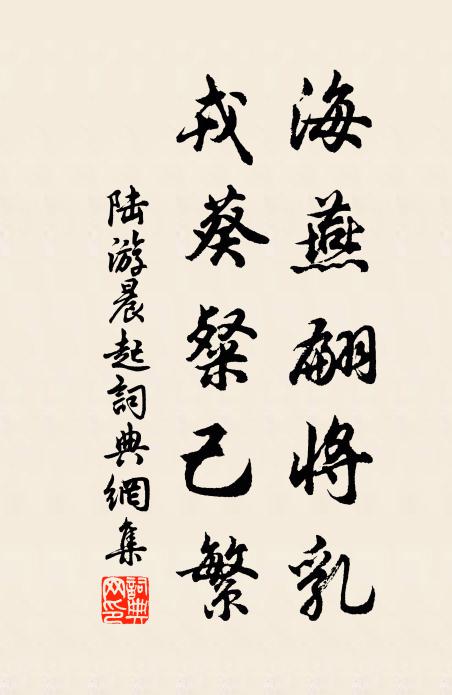 海燕翩将乳
戎葵粲已繁
陆游晨起詞典網集
詞典
网印